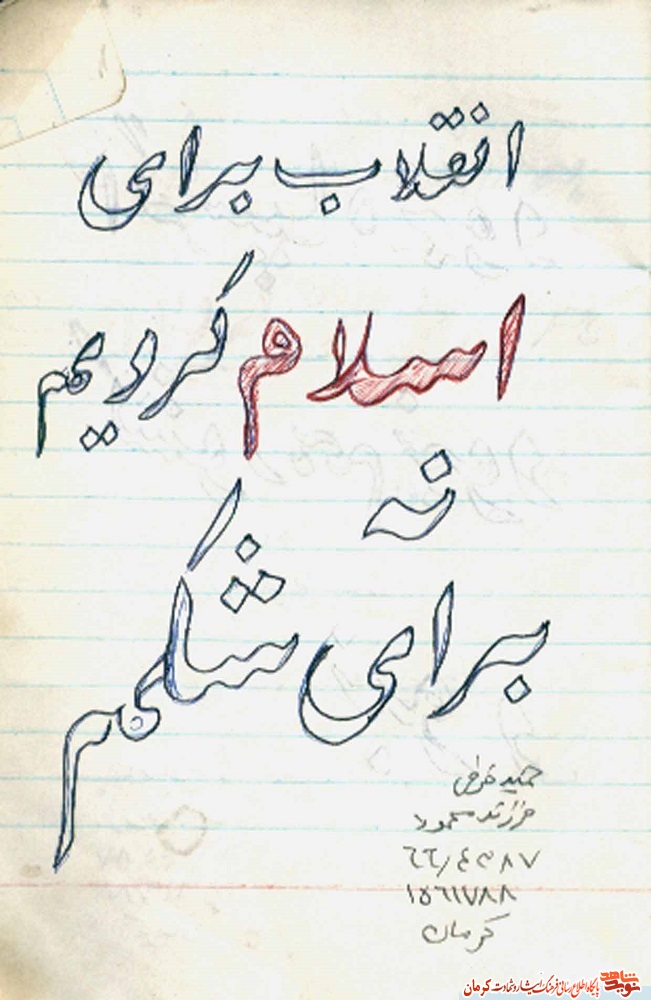 انقلاب برای
اسلام کردیم
نه
برای شکم
حمید
فرزند محمود
۱۵۶۱۷۸۸
کرمان
نوید شاهد
پایگاه اطلاع رسانی فرهنگ ایثار و شهادت کرمان